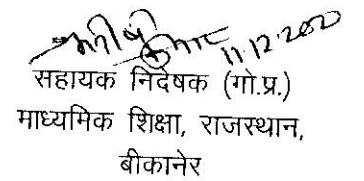 11.12.2020
सहायक निदेषक (गो.प्र.)
माध्यमिक शिक्षा, राजस्थान,
बीकानेर